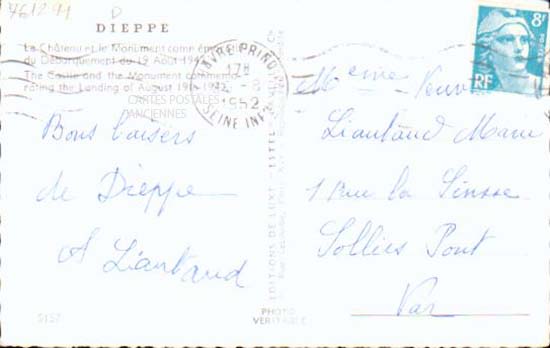 761294
D
DIEPPE
Le Château et le Monument comm
du Débarquement du 19 Août 1942
The Castle and the Monument commemo-
rating the Landing of August 19th 1942
CARTES POSTALES
ANCIENNES
HAVRE PRINC
17H
-8
1952
SEINE INF
8F
RF
Bons baisers
de Dieppe
A Liautaud
Mme Veuve
Liautaud Marie
1 Rue la
Sollies Pont
Var
EDITIONS DE LUXE "ESTEL"
5157
PHOTO
VERITABLE